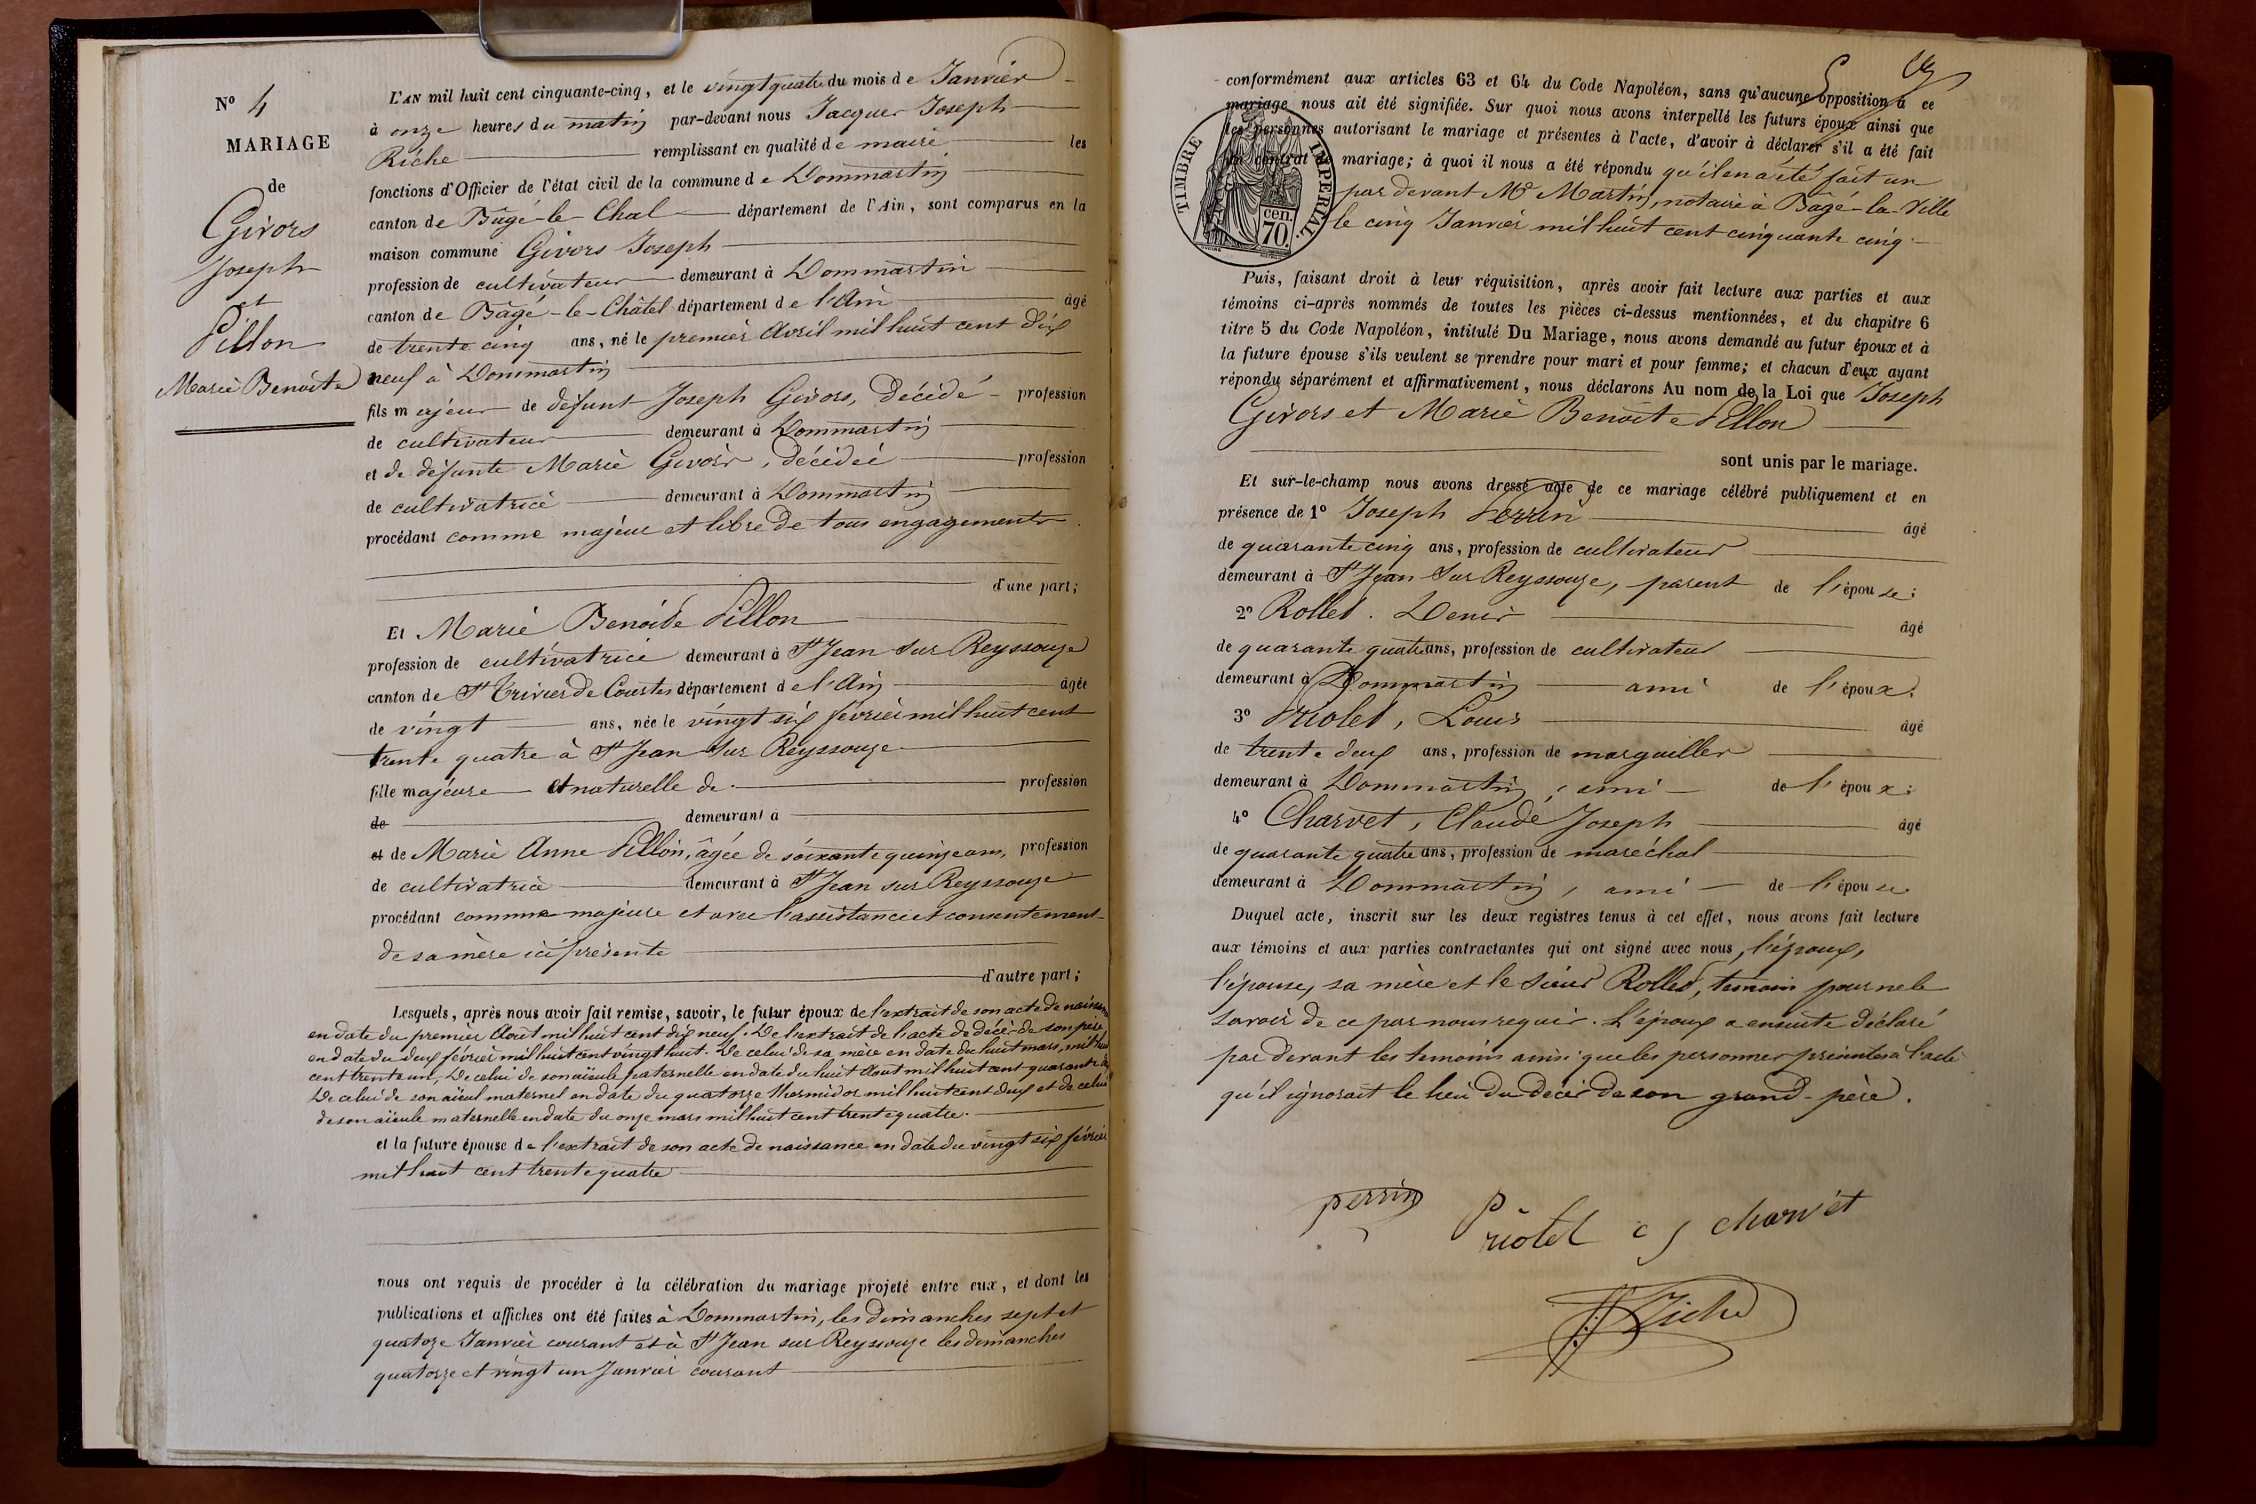 N° 4
MARIAGE
de
Givors
Joseph
et
Pillon
Marie Benoite
L'AN mil huit cent cinquante-cinq, et le vingt quatre du mois de Janvier
à onze heures du matin par-devant nous Jacques Joseph
Riche remplissant en qualité de maire les
fonctions d'Officier de l'état civil de la commune de Dommartin
canton de Bâgé-le-Chal département de l'Ain, sont comparus en la
maison commune Givors Joseph
profession de cultivateur demeurant à Dommartin
canton de Bâgé-le-Châtel département de l'Ain âgé
de trente cinq ans, né le premier Avril mil huit cent dix
neuf à Dommartin
fils majeur de défunt Joseph Givors, Décédé profession
de cultivateur demeurant à Dommartin
et de défunte Marie Givors, décédée profession
de cultivatrice demeurant à Dommartin
procédant comme majeur et libre de tous engagements
d'une part;
Et Marie Benoite Pillon
profession de cultivatrice demeurant à St Jean sur Reyssouze
canton de St Trivier de Courtes département de l'Ain âgée
de vingt ans, née le vingt six février mil huit cent
trente quatre à St Jean sur Reyssouze
fille majeure et naturelle de profession
de demeurant à
et de Marie Anne Pillon, âgée de soixante quinze ans, profession
de cultivatrice demeurant à St Jean sur Reyssouze
procédant comme majeure et avec l'assistance et consentement
de sa mère ici présente
d'autre part;
Lesquels, après nous avoir fait remise, savoir, le futur époux de l'extrait de son acte de naissance
en date du premier Aout mil huit cent dix neuf. De l'extrait de l'acte de décès de son père
en date du deux février mil huit cent vingt huit. De celui de sa mère en date du huit mars, mil huit
cent trente un, De celui de son aïeule paternelle en date du huit Aout mil huit cent quarante
De celui de son aïeul maternel en date du quatorze thermidor mil huit cent deux et de celui
de son aïeule maternelle en date du onze mars mil huit cent trente quatre.
et la future épouse de l'extrait de son acte de naissance en date du vingt six février
mil huit cent trente quatre
nous ont requis de procéder à la célébration du mariage projeté entre eux, et dont les
publications et affiches ont été faites à Dommartin, les dimanches sept et
quatorze Janvier courant et à St Jean sur Reyssouze les dimanches
quatorze et vingt un Janvier courant
conformément aux articles 63 et 64 du Code Napoléon, sans qu'aucune opposition à ce
mariage nous ait été signifiée. Sur quoi nous avons interpellé les futurs époux ainsi que
les personnes autorisant le mariage et présentes à l'acte, d'avoir à déclarer s'il a été fait
un contrat de mariage; à quoi il nous a été répondu qu'il en a été fait un
par devant Me Martin, notaire à Bâgé-la-Ville
le cinq Janvier mil huit cent cinquante cinq.
TIMBRE IMPERIAL.
cen.
70.
Puis, faisant droit à leur réquisition, après avoir fait lecture aux parties et aux
témoins ci-après nommés de toutes les pièces ci-dessus mentionnées, et du chapitre 6
titre 5 du Code Napoléon, intitulé Du Mariage, nous avons demandé au futur époux et à
la future épouse s'ils veulent se prendre pour mari et pour femme; et chacun d'eux ayant
répondu séparément et affirmativement, nous déclarons Au nom de la Loi que Joseph
Givors et Marie Benoite Pillon
sont unis par le mariage.
Et sur-le-champ nous avons dressé acte de ce mariage célébré publiquement et en
présence de 1° Joseph Perrin âgé
de quarante cinq ans, profession de cultivateur
demeurant à St Jean sur Reyssouze, parent de l'épouse;
2° Rollet. Denis âgé
de quarante quatre ans, profession de cultivateur
demeurant à Dommartin ami de l'époux;
3° Priolet, Louis âgé
de trente deux ans, profession de marguiller
demeurant à Dommartin, ami de l'époux;
4° Charvet, Claude Joseph âgé
de quarante quatre ans, profession de maréchal
demeurant à Dommartin, ami de l'épouse
Duquel acte, inscrit sur les deux registres tenus à cet effet, nous avons fait lecture
aux témoins et aux parties contractantes qui ont signé avec nous, l'époux,
l'épouse, sa mère et le sieur Rollet, temoin pour ne le
savoir de ce par nous requis. L'époux a ensuite déclaré
par devant les temoins ainsi que les personnes présentes à l'acte
qu'il ignorait le lieu du décès de son grand-père.
perrin
Priolet
c j charvet
JJ Riche